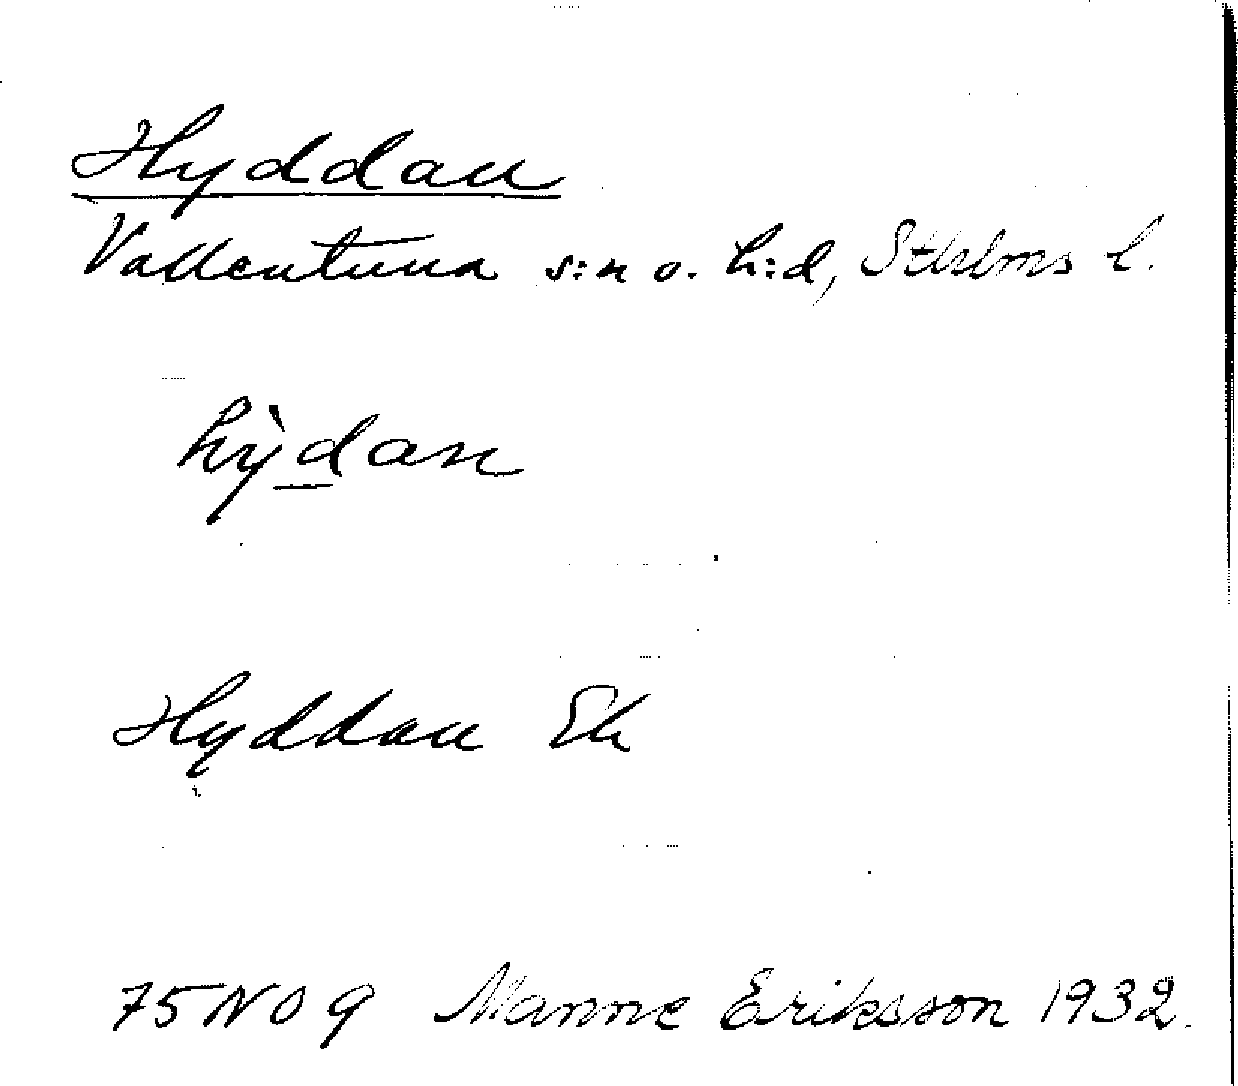 Hyddan
Vallentuna s:n o. h:d, Sthlms l.
hỳdan
Hyddan Ek
75 NO 9 Manne Eriksson 1932.